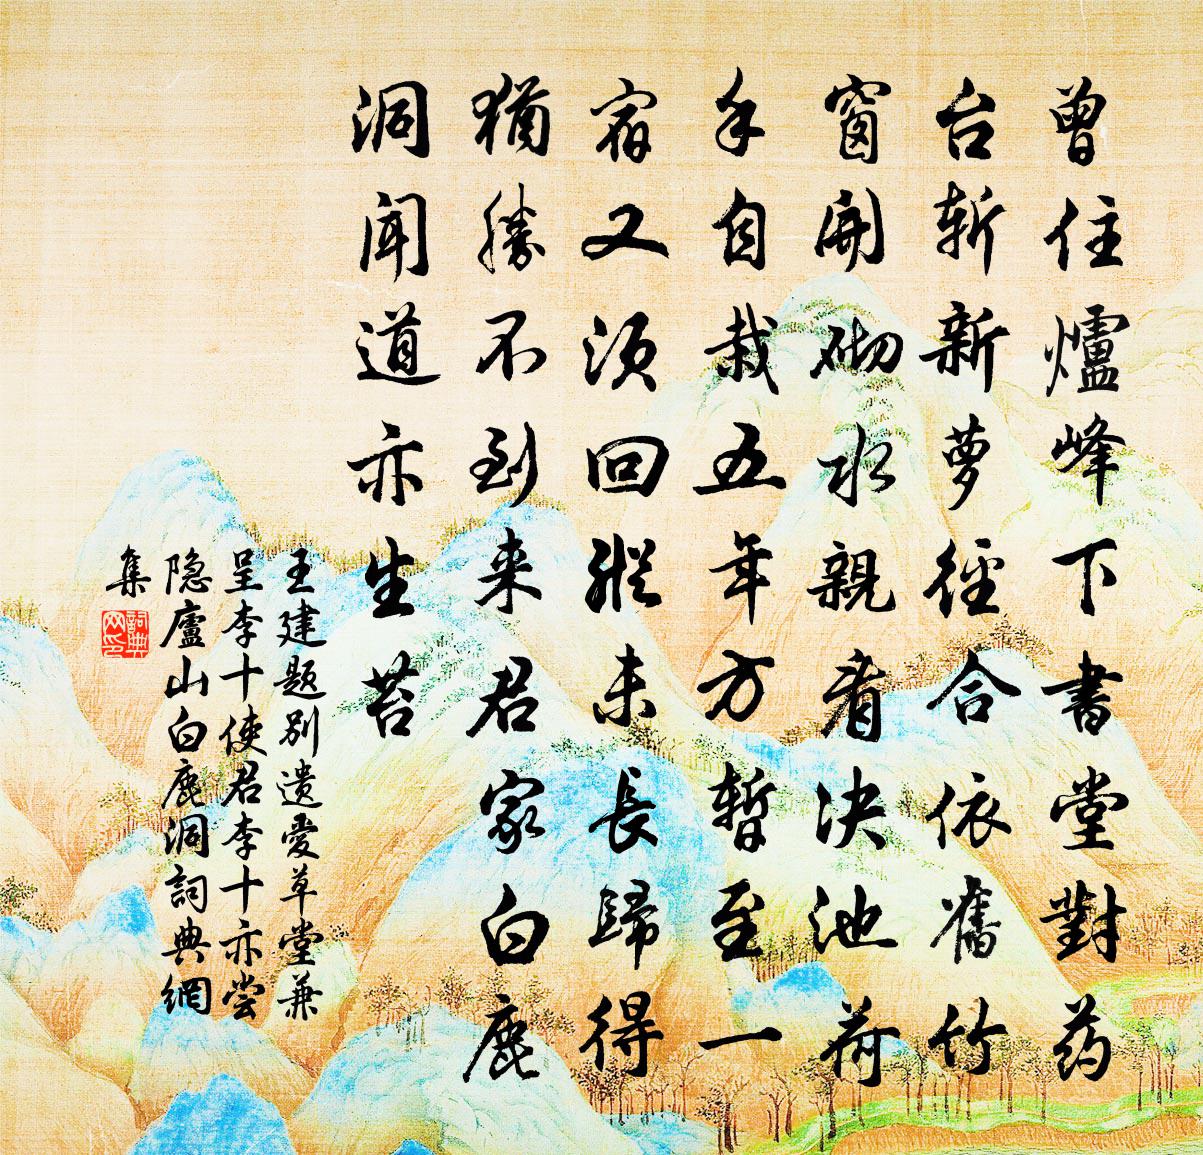 曾住爐峰下書堂對药
台斩新萝徑合依舊竹
窗開砌水親看決池荷
手自栽五年方暫至一
宿又須回縱未長歸得
猶勝不到来君家白鹿
洞聞道亦生苔
王建題别遺愛草堂兼
呈李十使君李十亦尝
隐廬山白鹿洞詞典網
集
詞典
网印